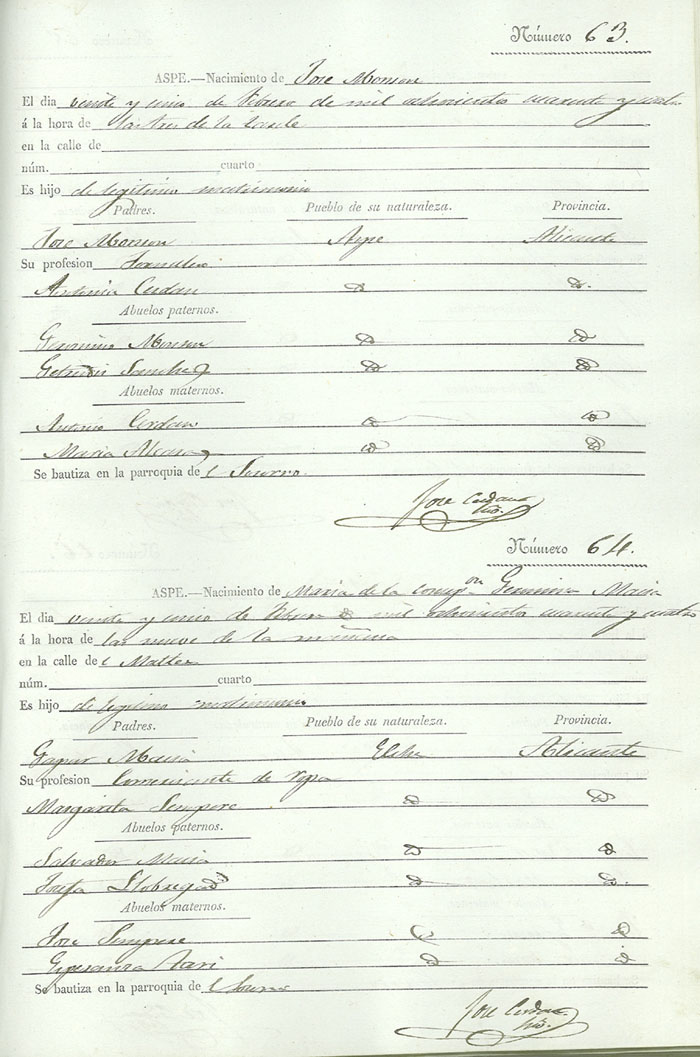 Número 63.
ASPE.—Nacimiento de Jose Monzon
El dia veinte y cinco de Febrero de mil ochocientos cuarenta y cuatro
á la hora de las tres de la tarde
en la calle de
núm. cuarto
Es hijo de legitimo matrimonio
Padres. Pueblo de su naturaleza. Provincia.
Jose Monzon Aspe Alicante
Su profesion Jornalero
Antonia Cerdan id id.
Abuelos paternos.
Geronimo Monzon id id
Getrudis Sanchez id id
Abuelos maternos.
Antonio Cerdan id id
Maria Alcaraz id id
Se bautiza en la parroquia de l Socorro
Jose Cerdan
Número 64.
ASPE.—Nacimiento de Maria de la Concepⁿ Macia
El dia veinte y cinco de Febrero de mil ochocientos cuarenta y cuatro
á la hora de las nueve de la mañana
en la calle de
núm. cuarto
Es hijo de legitimo matrimonio
Padres. Pueblo de su naturaleza. Provincia.
Gaspar Macia Elche Alicante
Su profesion Comerciante de ropa
Margarita Sempere id id
Abuelos paternos.
Salvador Macia id id
Josefa Llobregad id id.
Abuelos maternos.
Jose Sempere id id
Esperanza id id
Se bautiza en la parroquia de l Socorro
Jose Cerdan